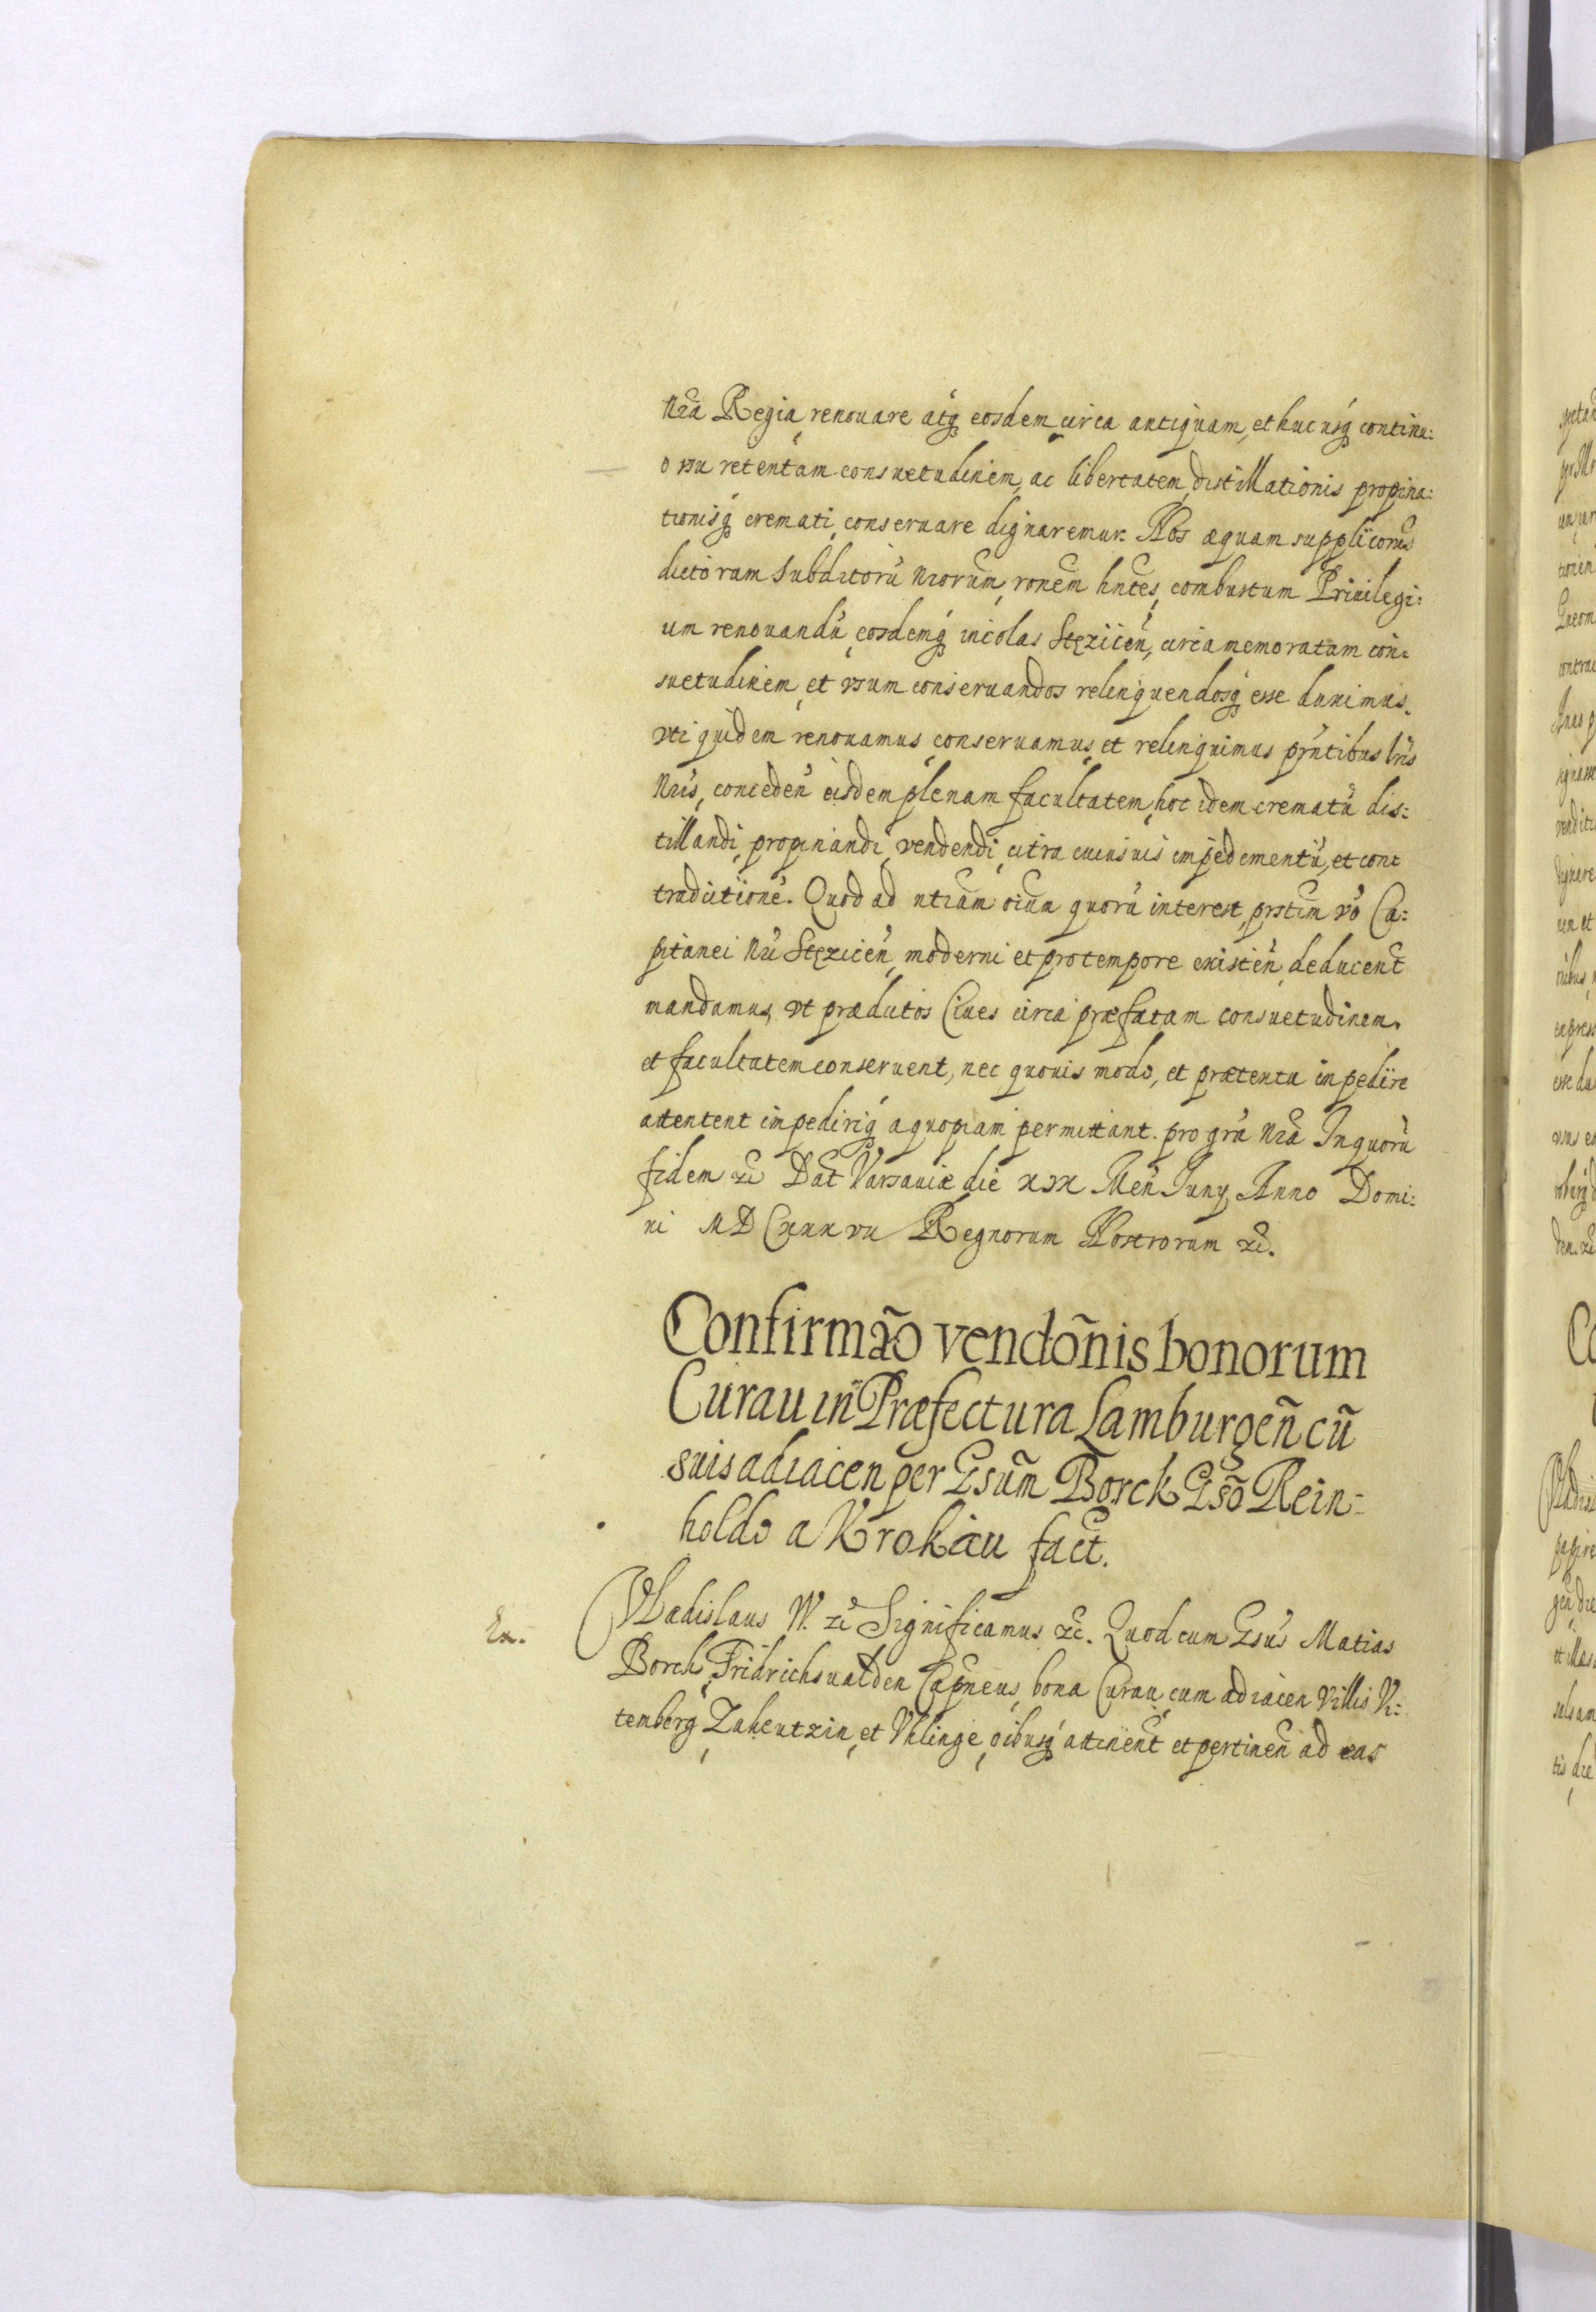 nrã Regia, renouare atq́ eosdem circa antiquam, et huc usq́ continu:
o usu retentam consuetudinem, ac libertatem, distillationis propina:
tionisq́ cremati, conseruare dignaremur. Nos æquam supplicorũ
dictoram Subditorũ nrorũm, ronẽm hntẽs, combustum Priuilegi:
um renouandũ, eosdemq́ incolas Stęziceñ, circa memoratam con:
suetudinem, et usum conseruandos relinquendosq́ esse duximus.
vti quidem renouamus, conseruamus, et relinquimus pr̃ntibus lrĩs
nrĩs, concedeñ eisdem plenam facultatem, hoc idem crematũ dis:
tillandi, propinandi, vendendi, citra cuiusuis impedimentũ, et con:
tradictionẽ. Quod ad ntiãm oiũm quorũ interest, prstĩm vo Ca:
pitanei nrĩ Stęziceñ, moderni et pro tempore existeñ, deducent
mandamus, vt prædictos Ciues circa præfatam consuetudinem
et facultatem conseruent, nec quouis modo, et prætextu inpedire
attentent impediriq́ a quopiam permittant. pro grã nrã In quorũ
fidem zc Dat Varsauiæ die xix Meñ Juny, Anno Domi:
ni MDCxxxvii Regnorum Nostrorum zc.
Confirmão vendõnis bonorum
Curau in Præfectura Lamburgeñ cũ
suis adiacen per Gsũm Borck Gsõ Rein=
holdo a Krokau fact.
Ex.
Vladislaus IV. zc Significamus zc. Quod cum Gsũs Matias
Borck, Fridrichsualden Capneus, bona Curau, cum adiacen villis Vi:
temberg, Zakeutzin, et Vhlinge, oibusq́ attinent et pertineñ ad eas